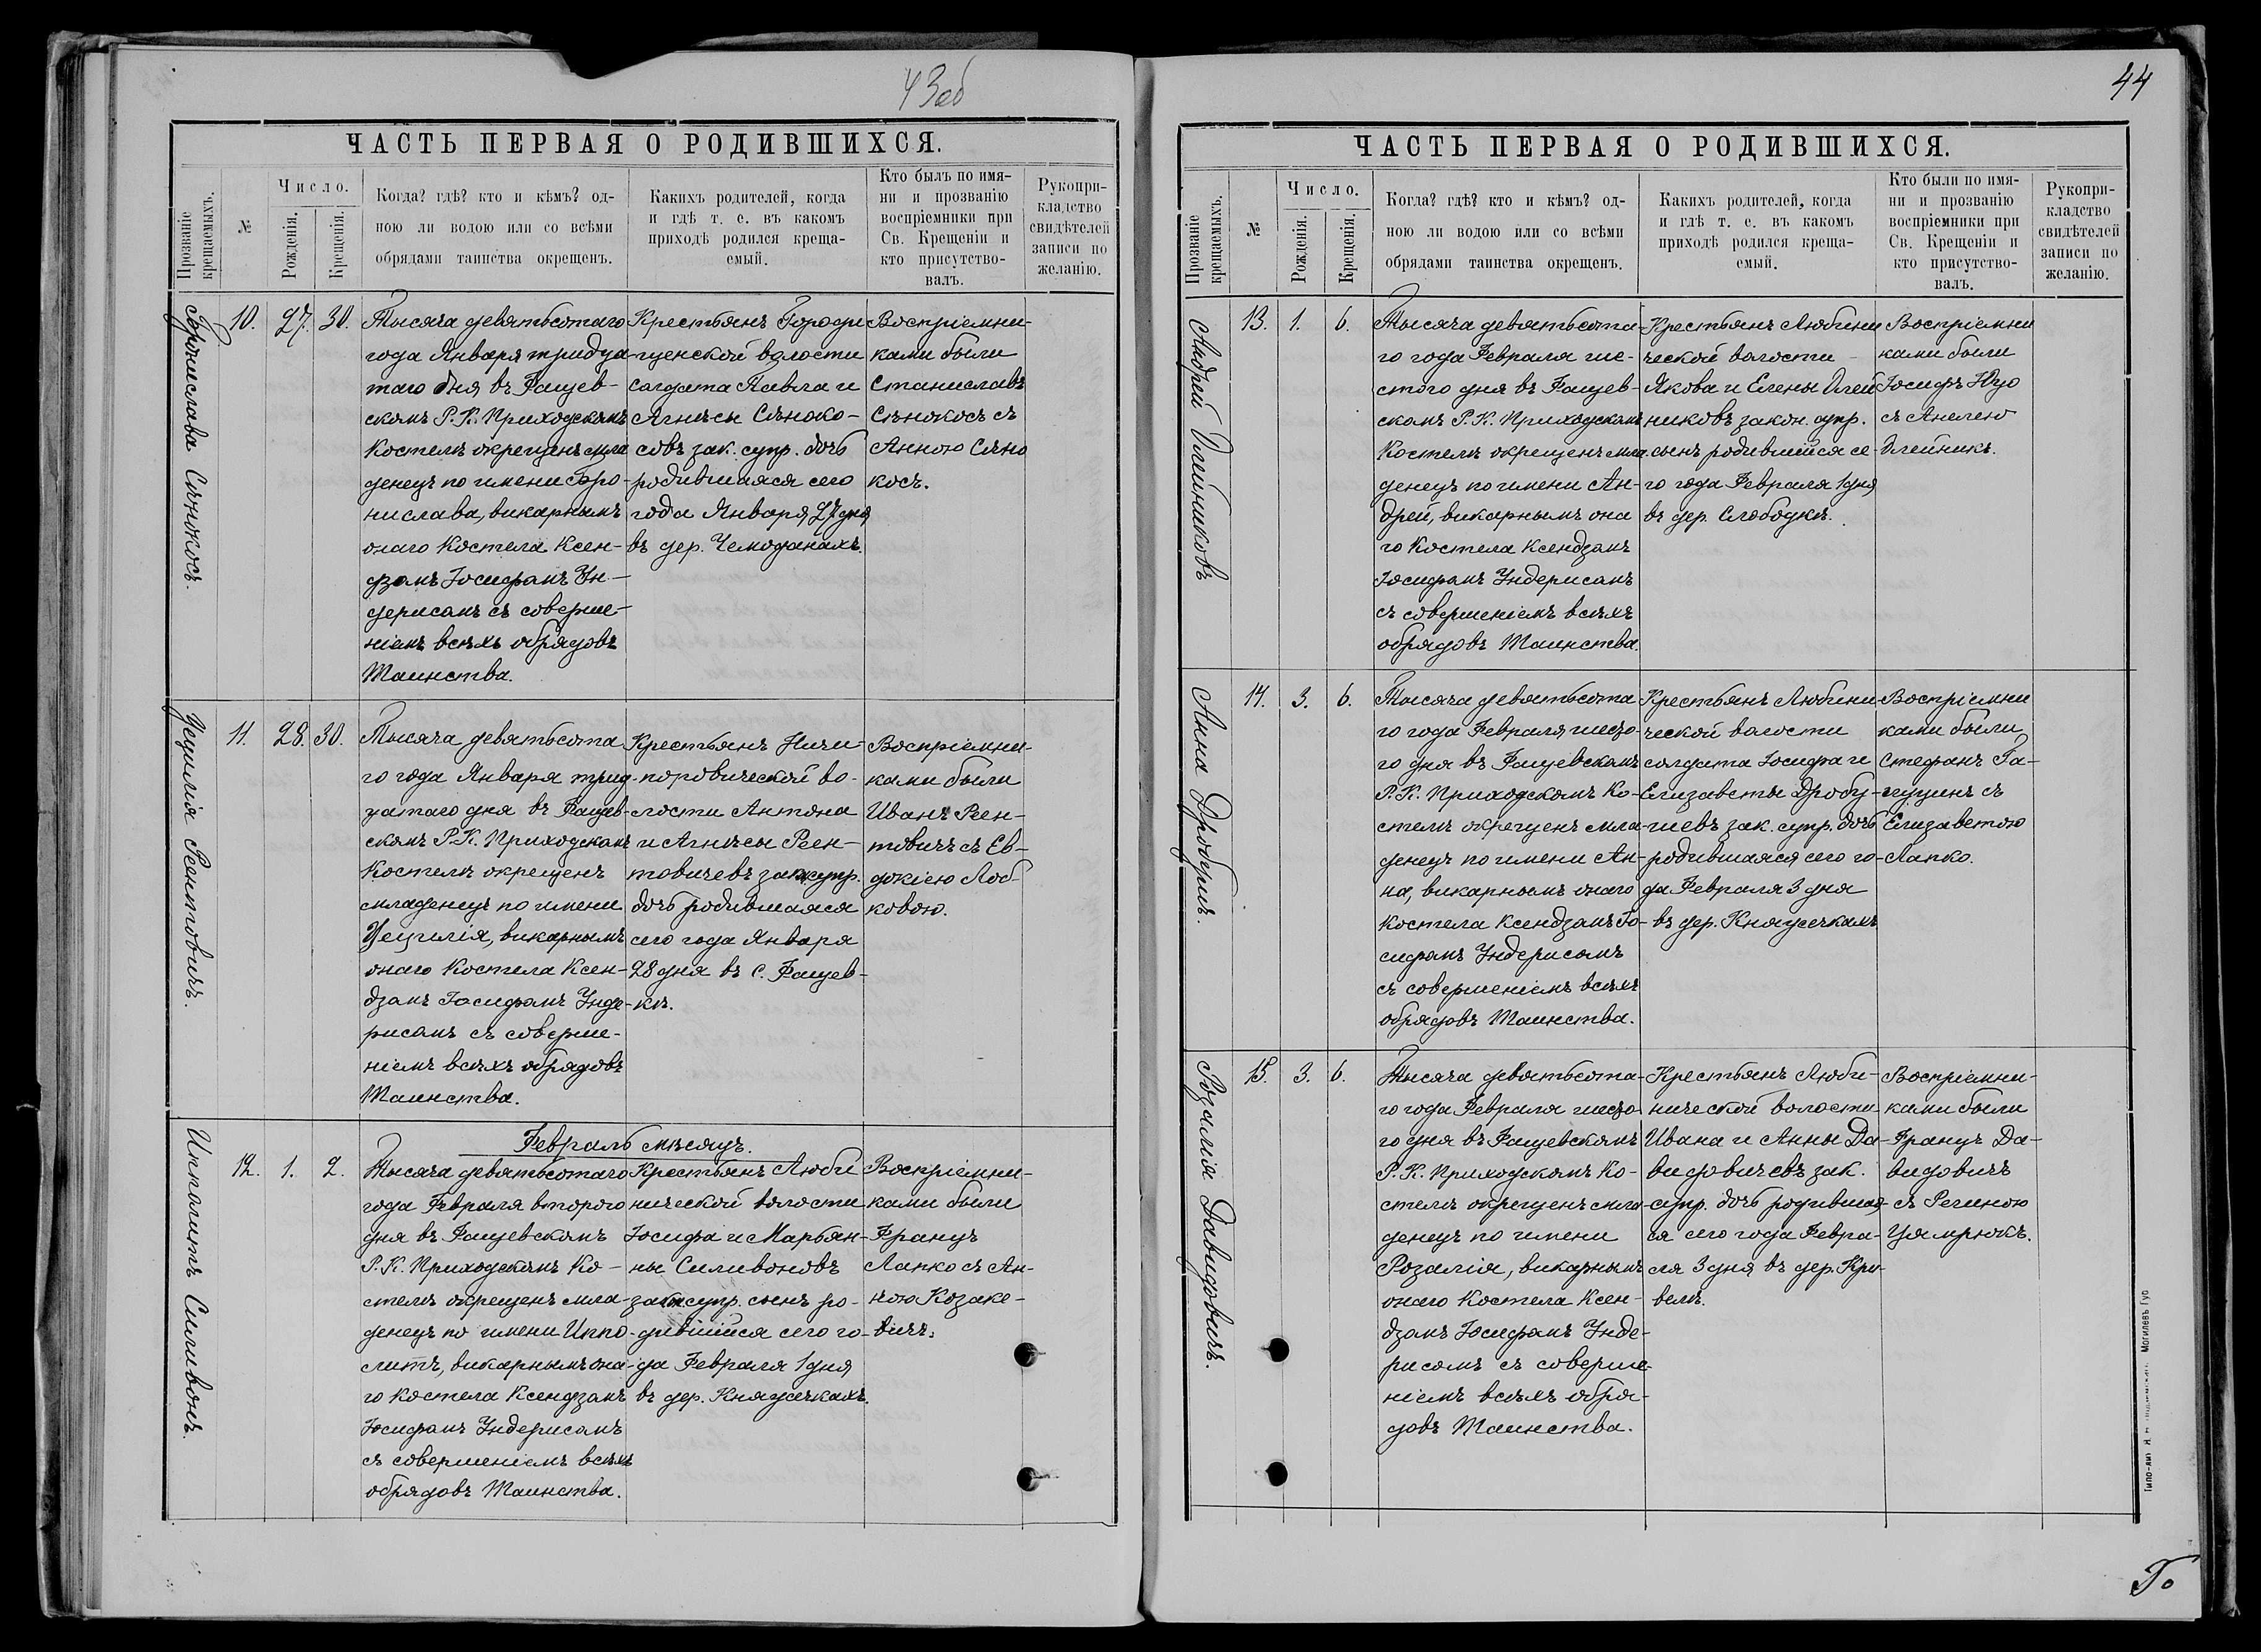 43об
ЧАСТЬ ПЕРВАЯ О РОДИВШИХСЯ.
Прозваніе крещаемыхъ.
№
Число.
Рожденія.
Крещенія.
Когда? гдѣ? кто и кѣмъ? од-
ною ли водою или со всѣми
обрядами таинства окрещенъ.
Какихъ родителей, когда
и гдѣ т. е. въ какомъ
приходѣ родился креща-
емый.
Кто былъ по имя-
ни и прозванію
воспріемники при
Св. Крещеніи и
кто присутство-
валъ.
Рукопри-
кладство
свидѣтелей
записи по
желанію.
Бронислава Сѣнокосъ.
10.
27.
30.
Тысяча девятьсотаго
года Января тридца-
таго дня въ Фащев-
скомъ Р. К. Приходскомъ
Костелѣ окрещенъ мла
денецъ по имени Бро-
нислава, викарнымъ
онаго Костела Ксен-
дзомъ Іосифомъ Ун-
дерисомъ съ соверше-
ніемъ всѣхъ обрядовъ
Таинства.
Крестьянъ Городи
щенской волости
солдата Павла и
Агнѣсы Сѣноко-
совъ зак. супр. дочь
родившаяся сего
года Января 27 дня
въ дер. Чемоданахъ.
Воспріемни-
ками были
Станиславъ
Сѣнокосъ съ
Анною Сѣно
косъ.
Цецилія Реентовичъ.
11.
28.
30.
Тысяча девятьсота
го года Января трид-
цатаго дня въ Фащев-
скомъ Р.К. Приходскомъ
Костелѣ окрещенъ
младенецъ по имени
Цецилія, викарнымъ
онаго Костела Ксен-
дзомъ Іосифомъ Унде-
рисомъ съ соверше-
ніемъ всѣхъ обрядовъ
Таинства.
Крестьянъ Ничи-
поровической во-
лости Антона
и Агнѣсы Реен-
товичевъ зак. супр.
дочь родившаяся
сего года Января
28 дня въ с. Фащев-
кѣ.
Воспріемни-
ками были
Иванъ Реен-
товичъ съ Ев-
докіею Лоб-
ковою.
Февраль мѣсяцъ.
Ипполитъ Силивонъ.
12.
1.
2.
Тысяча девятьсотаго
года Февраля второго
дня въ Фащевскомъ
Р. К. Приходскомъ Ко-
стелѣ окрещенъ мла-
денецъ по имени Иппо-
литъ, викарнымъ она-
го костела Ксендзомъ
Іосифомъ Ундерисомъ
съ совершеніемъ всѣхъ
обрядовъ Таинства.
Крестьянъ Люби
нической волости
Іосифа и Марьян-
ны Силивоновъ
зак. супр. сынъ ро-
дившійся сего го-
да Февраля 1 дня
въ дер. Княжечкахъ.
Воспріемни-
ками были
Францъ
Лапко съ Ан-
ною Козаке-
вичъ.
44
ЧАСТЬ ПЕРВАЯ О РОДИВШИХСЯ.
Прозваніе крещаемыхъ.
№
Число.
Рожденія.
Крещенія.
Когда? гдѣ? кто и кѣмъ? од-
ною ли водою или со всѣми
обрядами таинства окрещенъ.
Какихъ родителей, когда
и гдѣ т. е. въ какомъ
приходѣ родился креща-
емый.
Кто были по имя-
ни и прозванію
воспріемники при
Св. Крещеніи и
кто присутство-
валъ.
Рукопри-
кладство
свидѣтелей
записи по
желанію.
Андрей Олейниковъ
13.
1.
6.
Тысяча девятьсота-
го года Февраля ше-
стого дня въ Фащев-
скомъ Р. К. Приходскомъ
Костелѣ окрещенъ мла-
денецъ по имени Ан-
дрей, викарнымъ она
го Костела Ксендзомъ
Іосифомъ Ундерисомъ
съ совершеніемъ всѣхъ
обрядовъ Таинства.
Крестьянъ Любини
ческой волости
Якова и Елены Олей
никовъ закон. супр.
сынъ родившійся се-
го года Февраля 1 дня
въ дер. Слободкѣ.
Воспріемни
ками были
Іосифъ
съ Анелею
Олейникъ.
Анна Дробушъ.
14.
3.
6.
Тысяча девятьсота
го года Февраля шесто-
го дня въ Фащевскомъ
Р. К. Приходскомъ Ко-
стелѣ окрещенъ мла-
денецъ по имени Ан-
на, викарнымъ онаго
костела Ксендзомъ Іо-
сифомъ Ундерисомъ
съ совершеніемъ всѣхъ
обрядовъ Таинства.
Крестьянъ Любини
ческой волости
солдата Іосифа и
Елизаветы Дробу-
шевъ зак. супр. дочь
родившаяся сего го-
да Февраля 3 дня
въ дер. Княжечкахъ
Воспріемни
ками были
Стефанъ Га-
съ
Елизаветою
Лапко.
Розалія Давидовичъ.
15.
3.
6.
Тысяча девятьсота-
го года Февраля шесто
го дня въ Фащевскомъ
Р. К. Приходскомъ Ко-
стелѣ окрещенъ мла-
денецъ по имени
Розалія, викарнымъ
онаго Костела Ксен-
дзомъ Іосифомъ Унде-
рисомъ съ соверше-
ніемъ всѣхъ обря-
довъ Таинства.
Крестьянъ Люби-
нической волости
Ивана и Анны Да-
видовичевъ зак.
супр. дочь родившая-
ся сего года Февра-
ля 3 дня въ дер. Кри-
велѣ.
Воспріемни-
ками были
Францъ Да-
видовичъ
съ Региною
Цямрюкъ.
Могилевъ Губ
Го